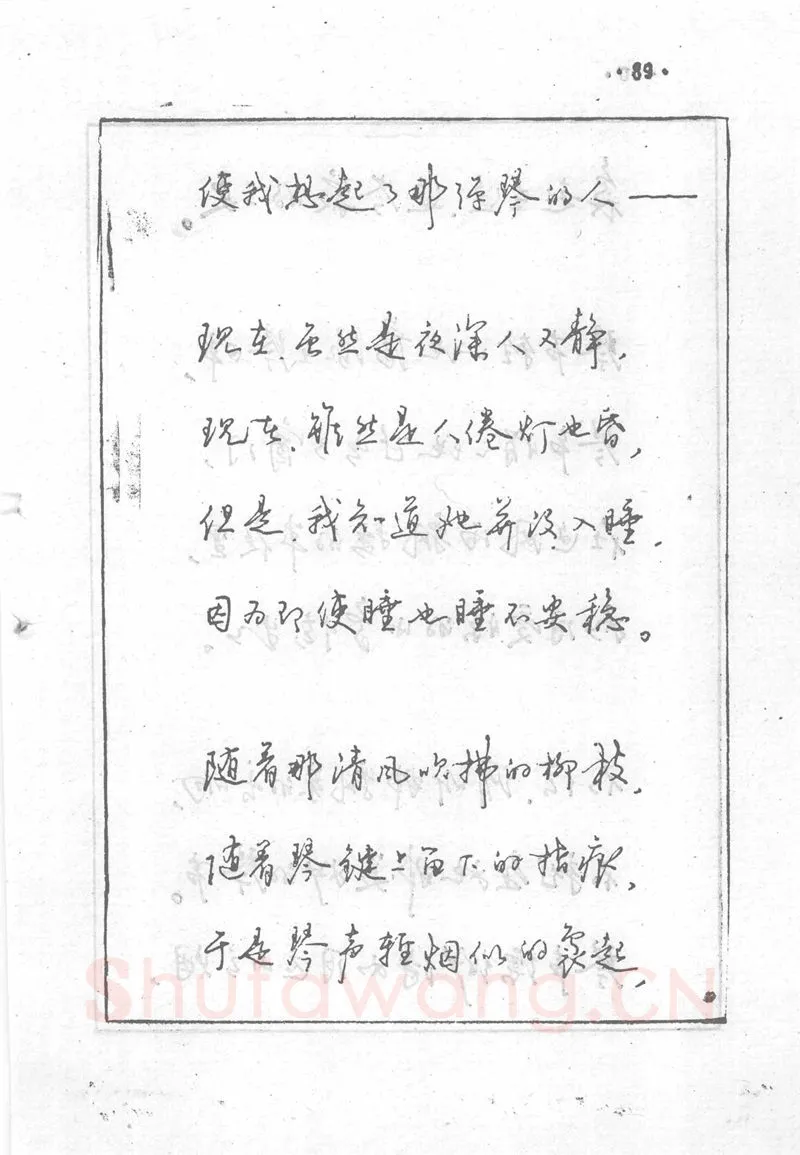 ·89·
使我想起了那弹琴的人——
现在,虽然是夜深人又静,
现在,虽然是人倦灯也昏,
但是,我知道她并没入睡,
因为即使睡也睡不安稳。
随着那清风吹拂的柳枝,
随着琴键上留下的指痕,
于是琴声轻烟似的袅起,
Shufawang.CN